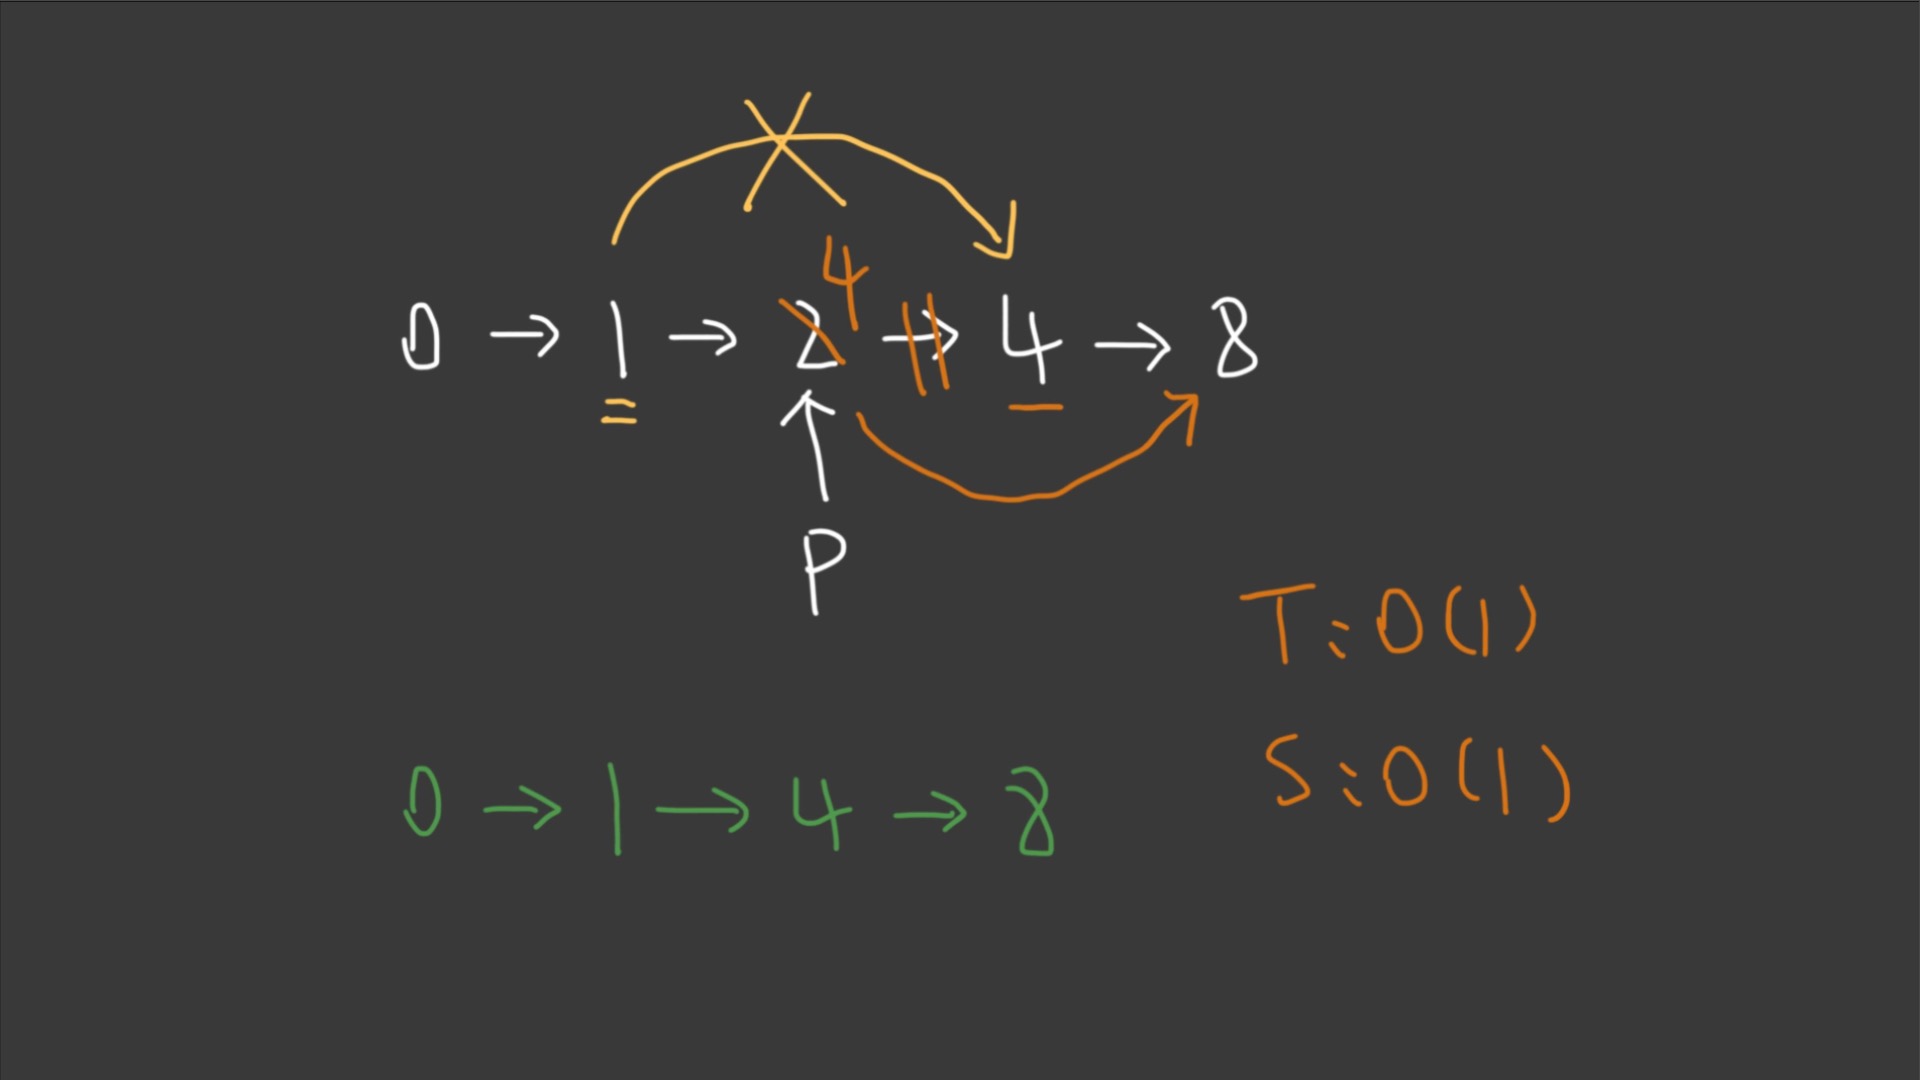 4
0 → 1 → 2 → 4 → 8
P
T: O(1)
S: O(1)
0 → 1 → 4 → 8